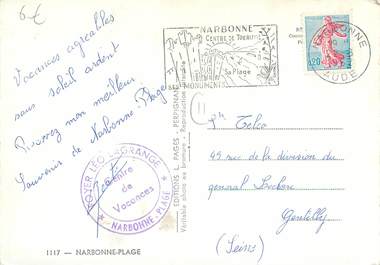 6€
Vacances agréables
sous soleil ardent
Recevez mon meilleur
Souvenir de Narbonne-Plage
FOYER LÉO LAGRANGE
Centre
de
Vacances
★ NARBONNE-PLAGE ★
1117 — NARBONNE-PLAGE
EDITIONS L. PAGES - PERPIGNAN
Véritable photo au bromure - Reproduction
NARBONNE
CENTRE DE TOURISME
Sa Plage
SES MONUMENTS
NARBONNE
AUDE
0,20
11
49 rue de la division du
general Leclerc
Gentilly
(Seine)